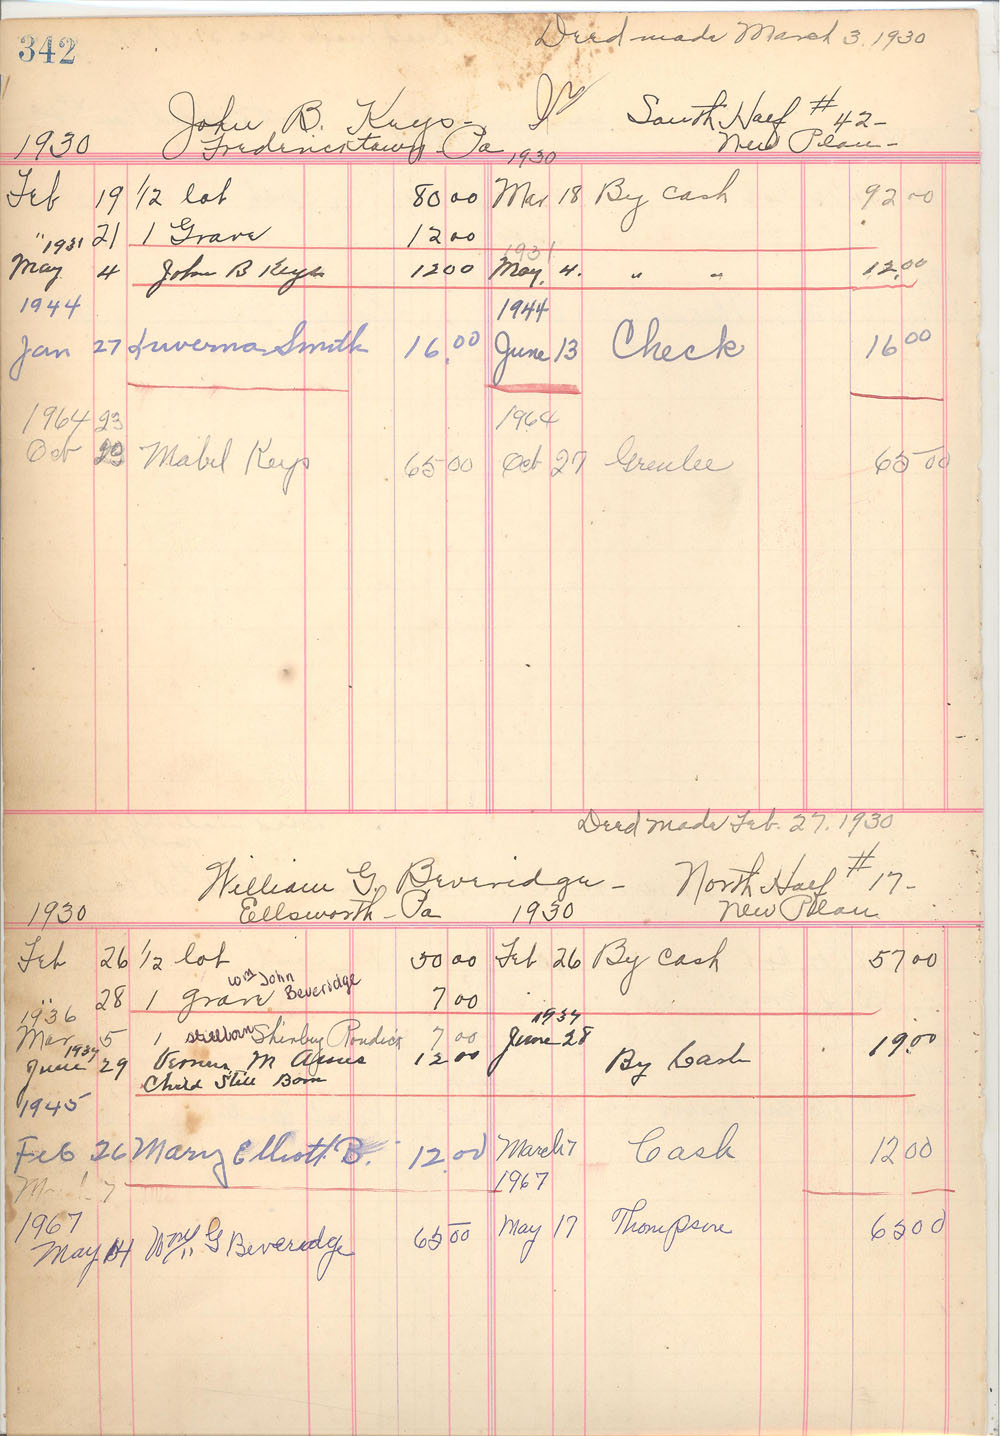 342
Deed made March 3, 1930
John B. Keys - Jr South Half #42-
1930 Fredericktown Pa 1930 New Plan -
Feb 19 1/2 lot 80 00 Mar 18 By cash 92 00
" 21 1 Grave 12 00
1931 1931
May 4 John B Keys 12 00 May. 4. " " 12.00
1944 1944
Jan 27 Luverna Smith 16.00 June 13 Check 16 00
1964 23 1964
Oct Mabel Keys 65 00 Oct 27 Greenlee 65 00
Deed made Feb. 27, 1930
William G. Beveridge - North Half #17-
1930 Ellsworth - Pa 1930 New Plan
Feb 26 1/2 lot 50 00 Feb 26 By cash 57 00
Wm John
" 28 1 Grave Beveridge 7 00
1936 1937
Mar 5 1 stillborn Shirley 7 00 June 28
1937
June 29 M Agnes 12 00 By Cash 19.00
Child Still Born
1945
Feb 26 Mary Elliott B. 12.00 March 7 Cash 12 00
7
1967 1967
May 14 Wm G Beveridge 65 00 May 17 Thompson 65 00